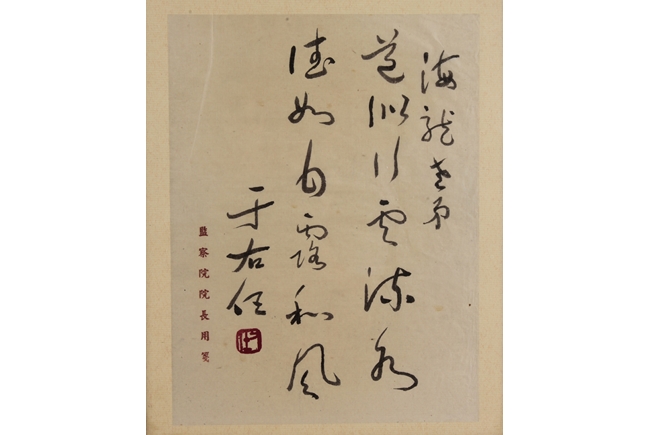 海龍老弟
道似行雲流水
德如甘露和風
于右任
監察院院長用箋